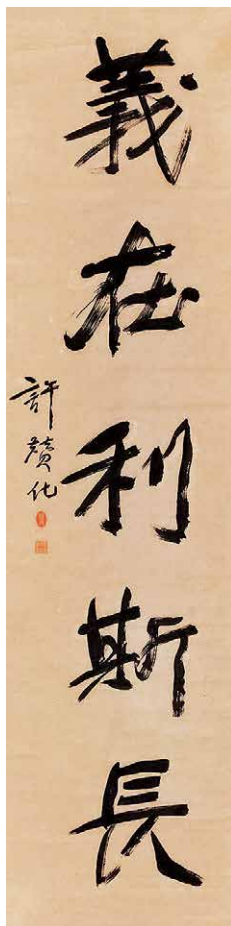 義在利斯長
許贊化